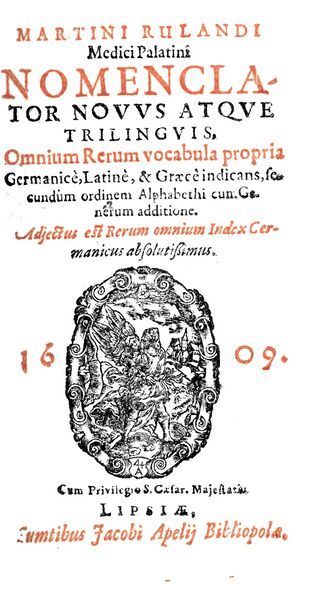 MARTINI RULANDI
Medici Palatini
NOMENCLA-
TOR NOVVS ATQVE
TRILINGVIS,
Omnium Rerum vocabula propria
Germanicè, Latinè, & Græcè indicans, se-
cundùm ordinem Alphabethi cum Ge-
nerum additione.
Adjectus est Rerum omnium Index Ger-
manicus absolutissimus.
16 09.
4 A
Cum Privilegio S. Cæsar. Majestatis
LIPSIÆ,
Sumtibus Jacobi Apelij Bibliopolæ.